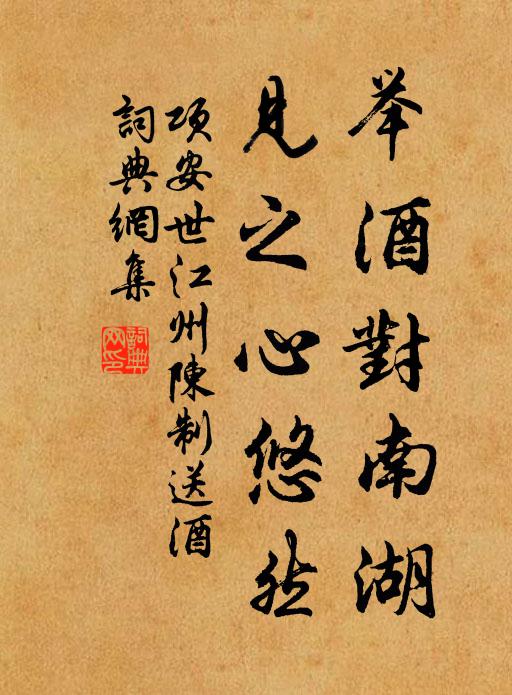 举酒對南湖
見之心悠然
項安世江州陳制送酒
詞典網集
詞典网印